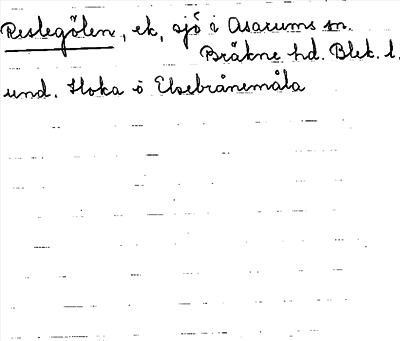 Reslegölen, ek, sjö i Asarums sn.
Bräkne hd. Blek. l.
und. Hoka i Elsebrånemåla